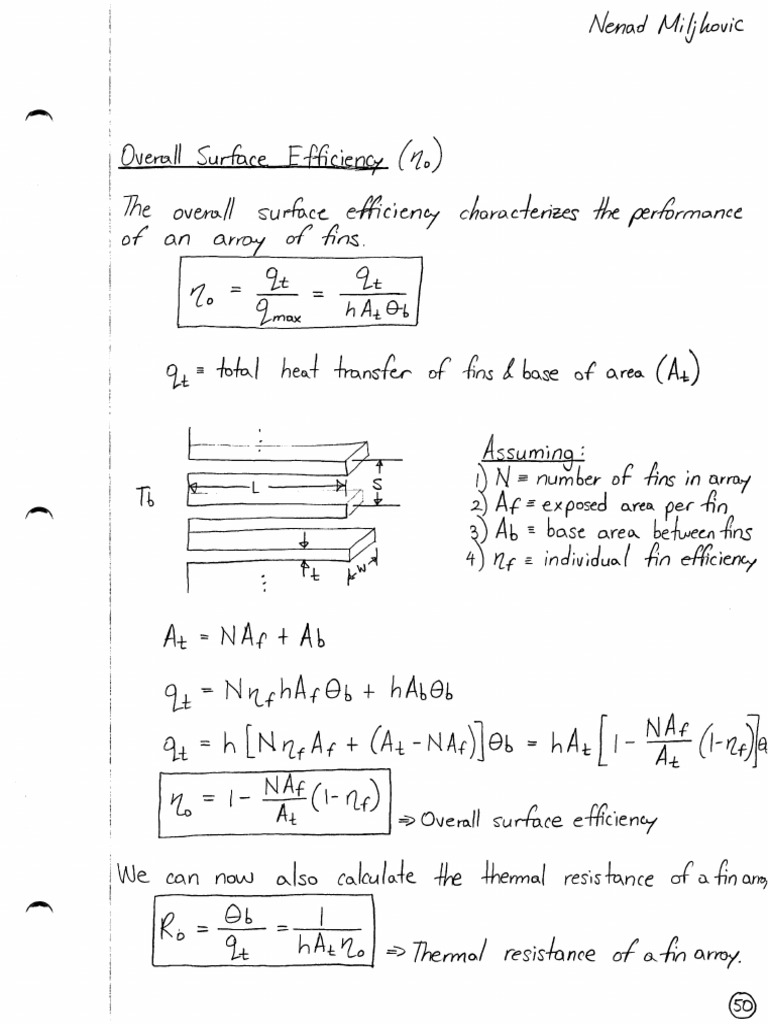 Nenad Miljkovic
Overall Surface Efficiency (ηₒ)
The overall surface efficiency characterizes the performance
of an array of fins.
ηₒ = q_t / q_max = q_t / (h A_t θ_b)
q_t ≡ total heat transfer of fins & base of area (A_t)
Assuming:
1) N ≡ number of fins in array
2) A_f ≡ exposed area per fin
3) A_b ≡ base area between fins
4) η_f ≡ individual fin efficiency
T_b
L
S
t
w
A_t = NA_f + A_b
q_t = Nη_f hA_f θ_b + hA_b θ_b
q_t = h[Nη_f A_f + (A_t - NA_f)]θ_b = hA_t [1 - NA_f/A_t (1-η_f)]θ
ηₒ = 1 - NA_f/A_t (1-η_f) ⇒ Overall surface efficiency
We can now also calculate the thermal resistance of a fin array
R_b = θ_b / q_t = 1 / (hA_t ηₒ) ⇒ Thermal resistance of a fin array.
50